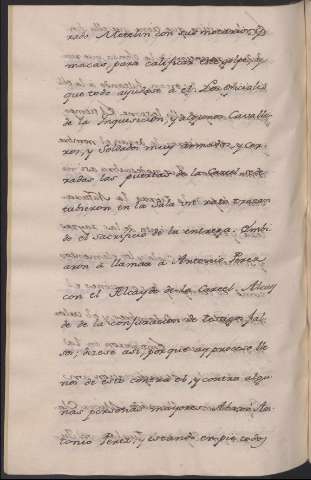 rado Metelin con sus notarios, y
macas, para calificar este golpe, y
que todo ayudase à el. Los oficiales
de la Inquisicion, y algunos Cavalle-
ros, y Soldados muy armados, y cer-
radas las puertas de la Carcel se de
tubieron en la Sala un rato tratan
do el sacrificio de la entrega. Embi
aron à llamar à Antonio Perez
con el Alcayde de la Carcel. Alcay
de de la conjuracion de testigos fal
sos; dicese asi, porque ay proceso lle
nos de esto contra el, y contra algu
nas personas mayores. Antonio
tonio Perez, y estando en pie todos